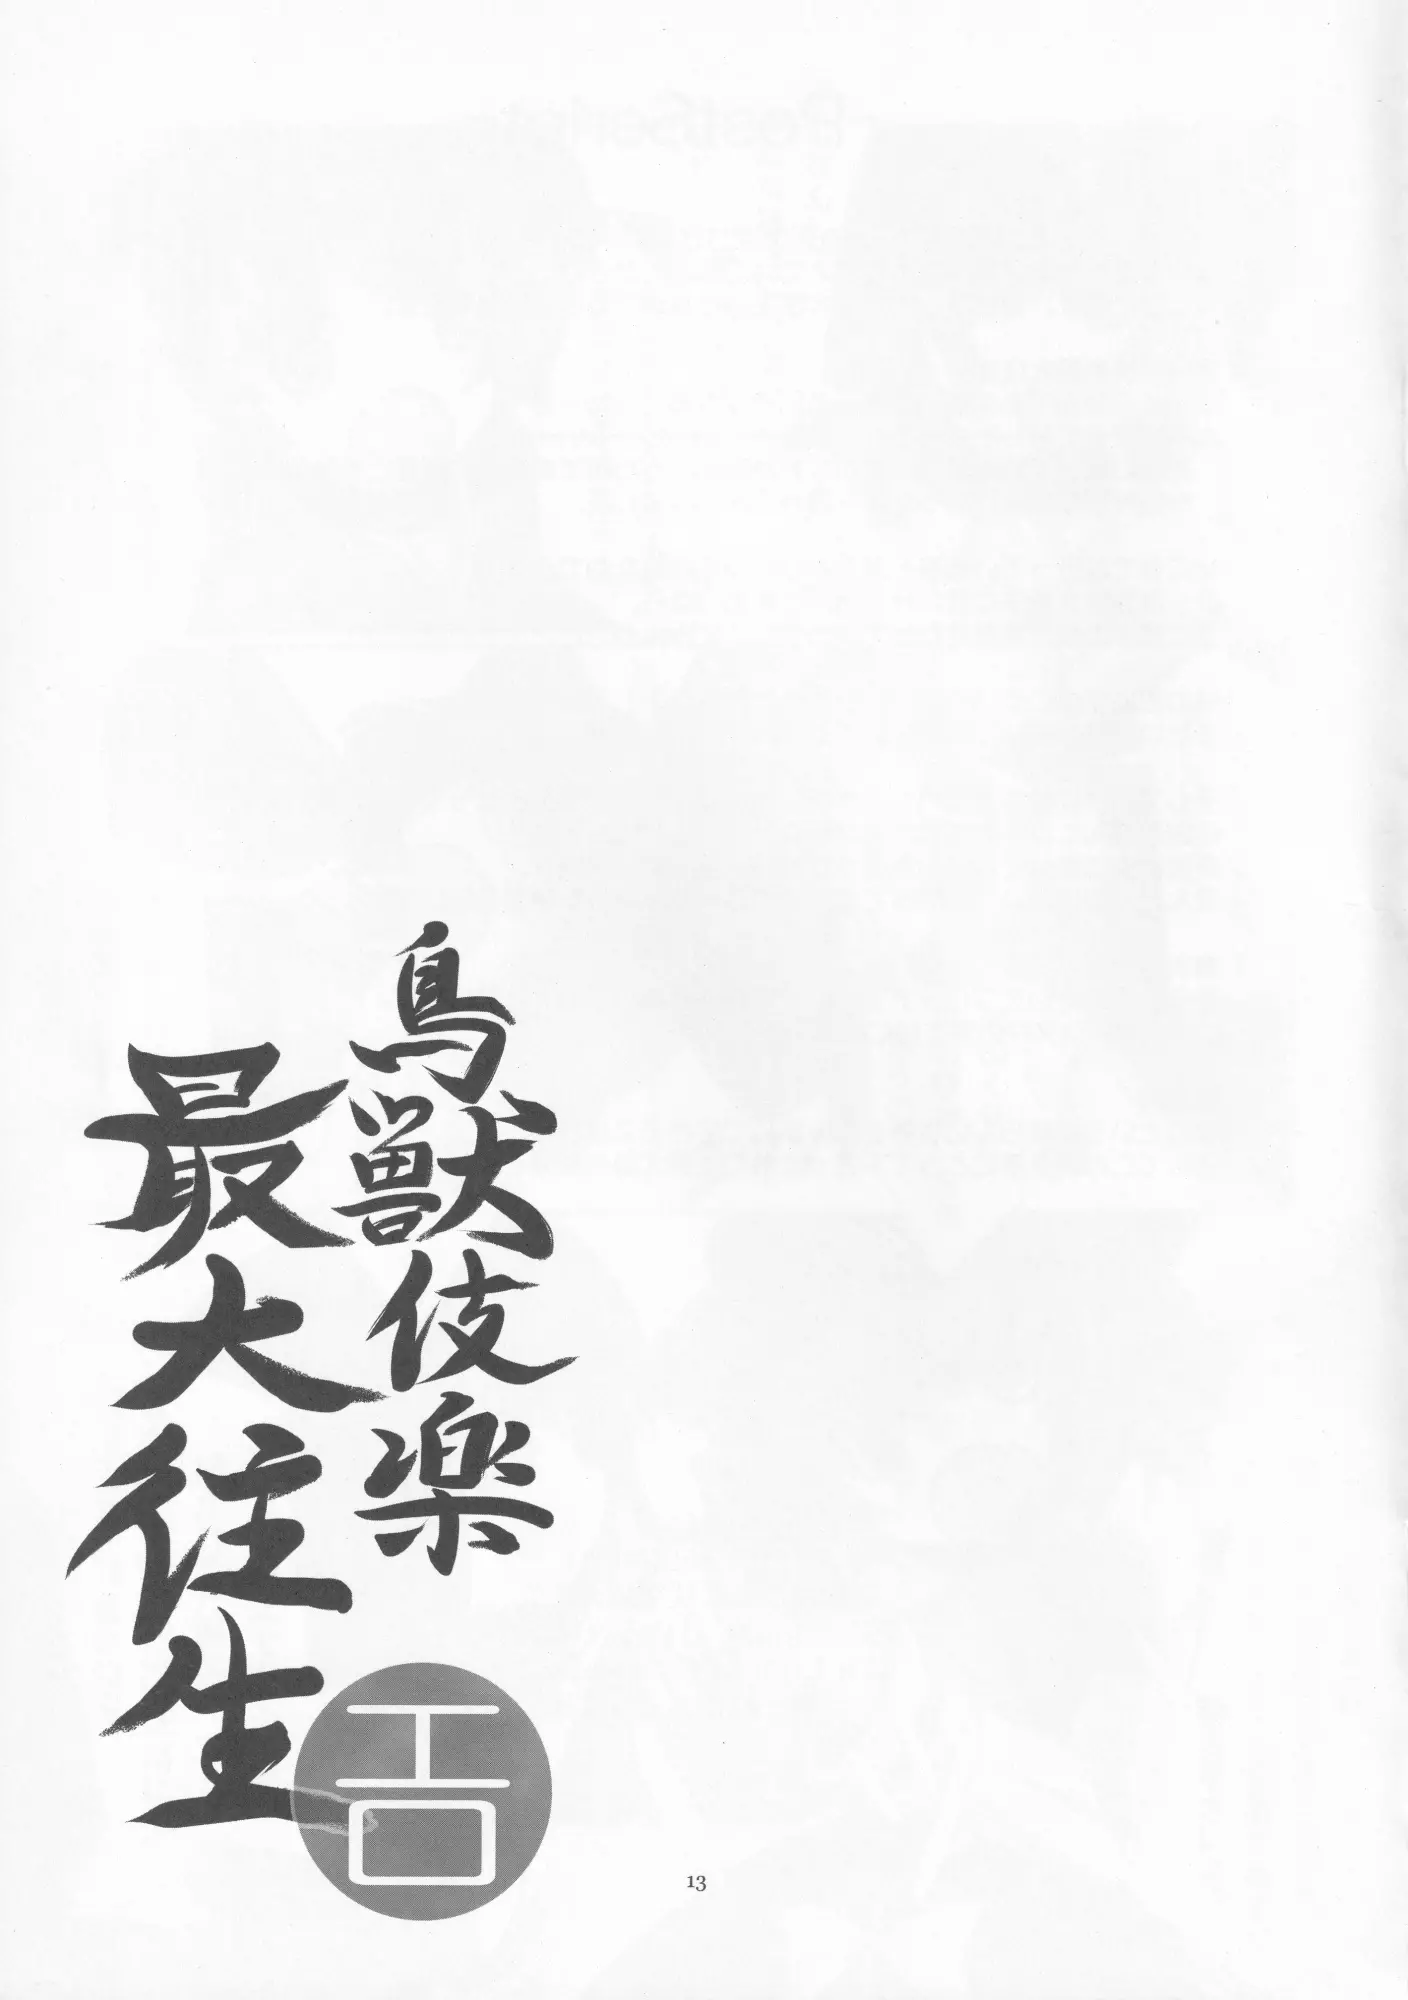 鳥獣伎楽
最大往生
エロ
13